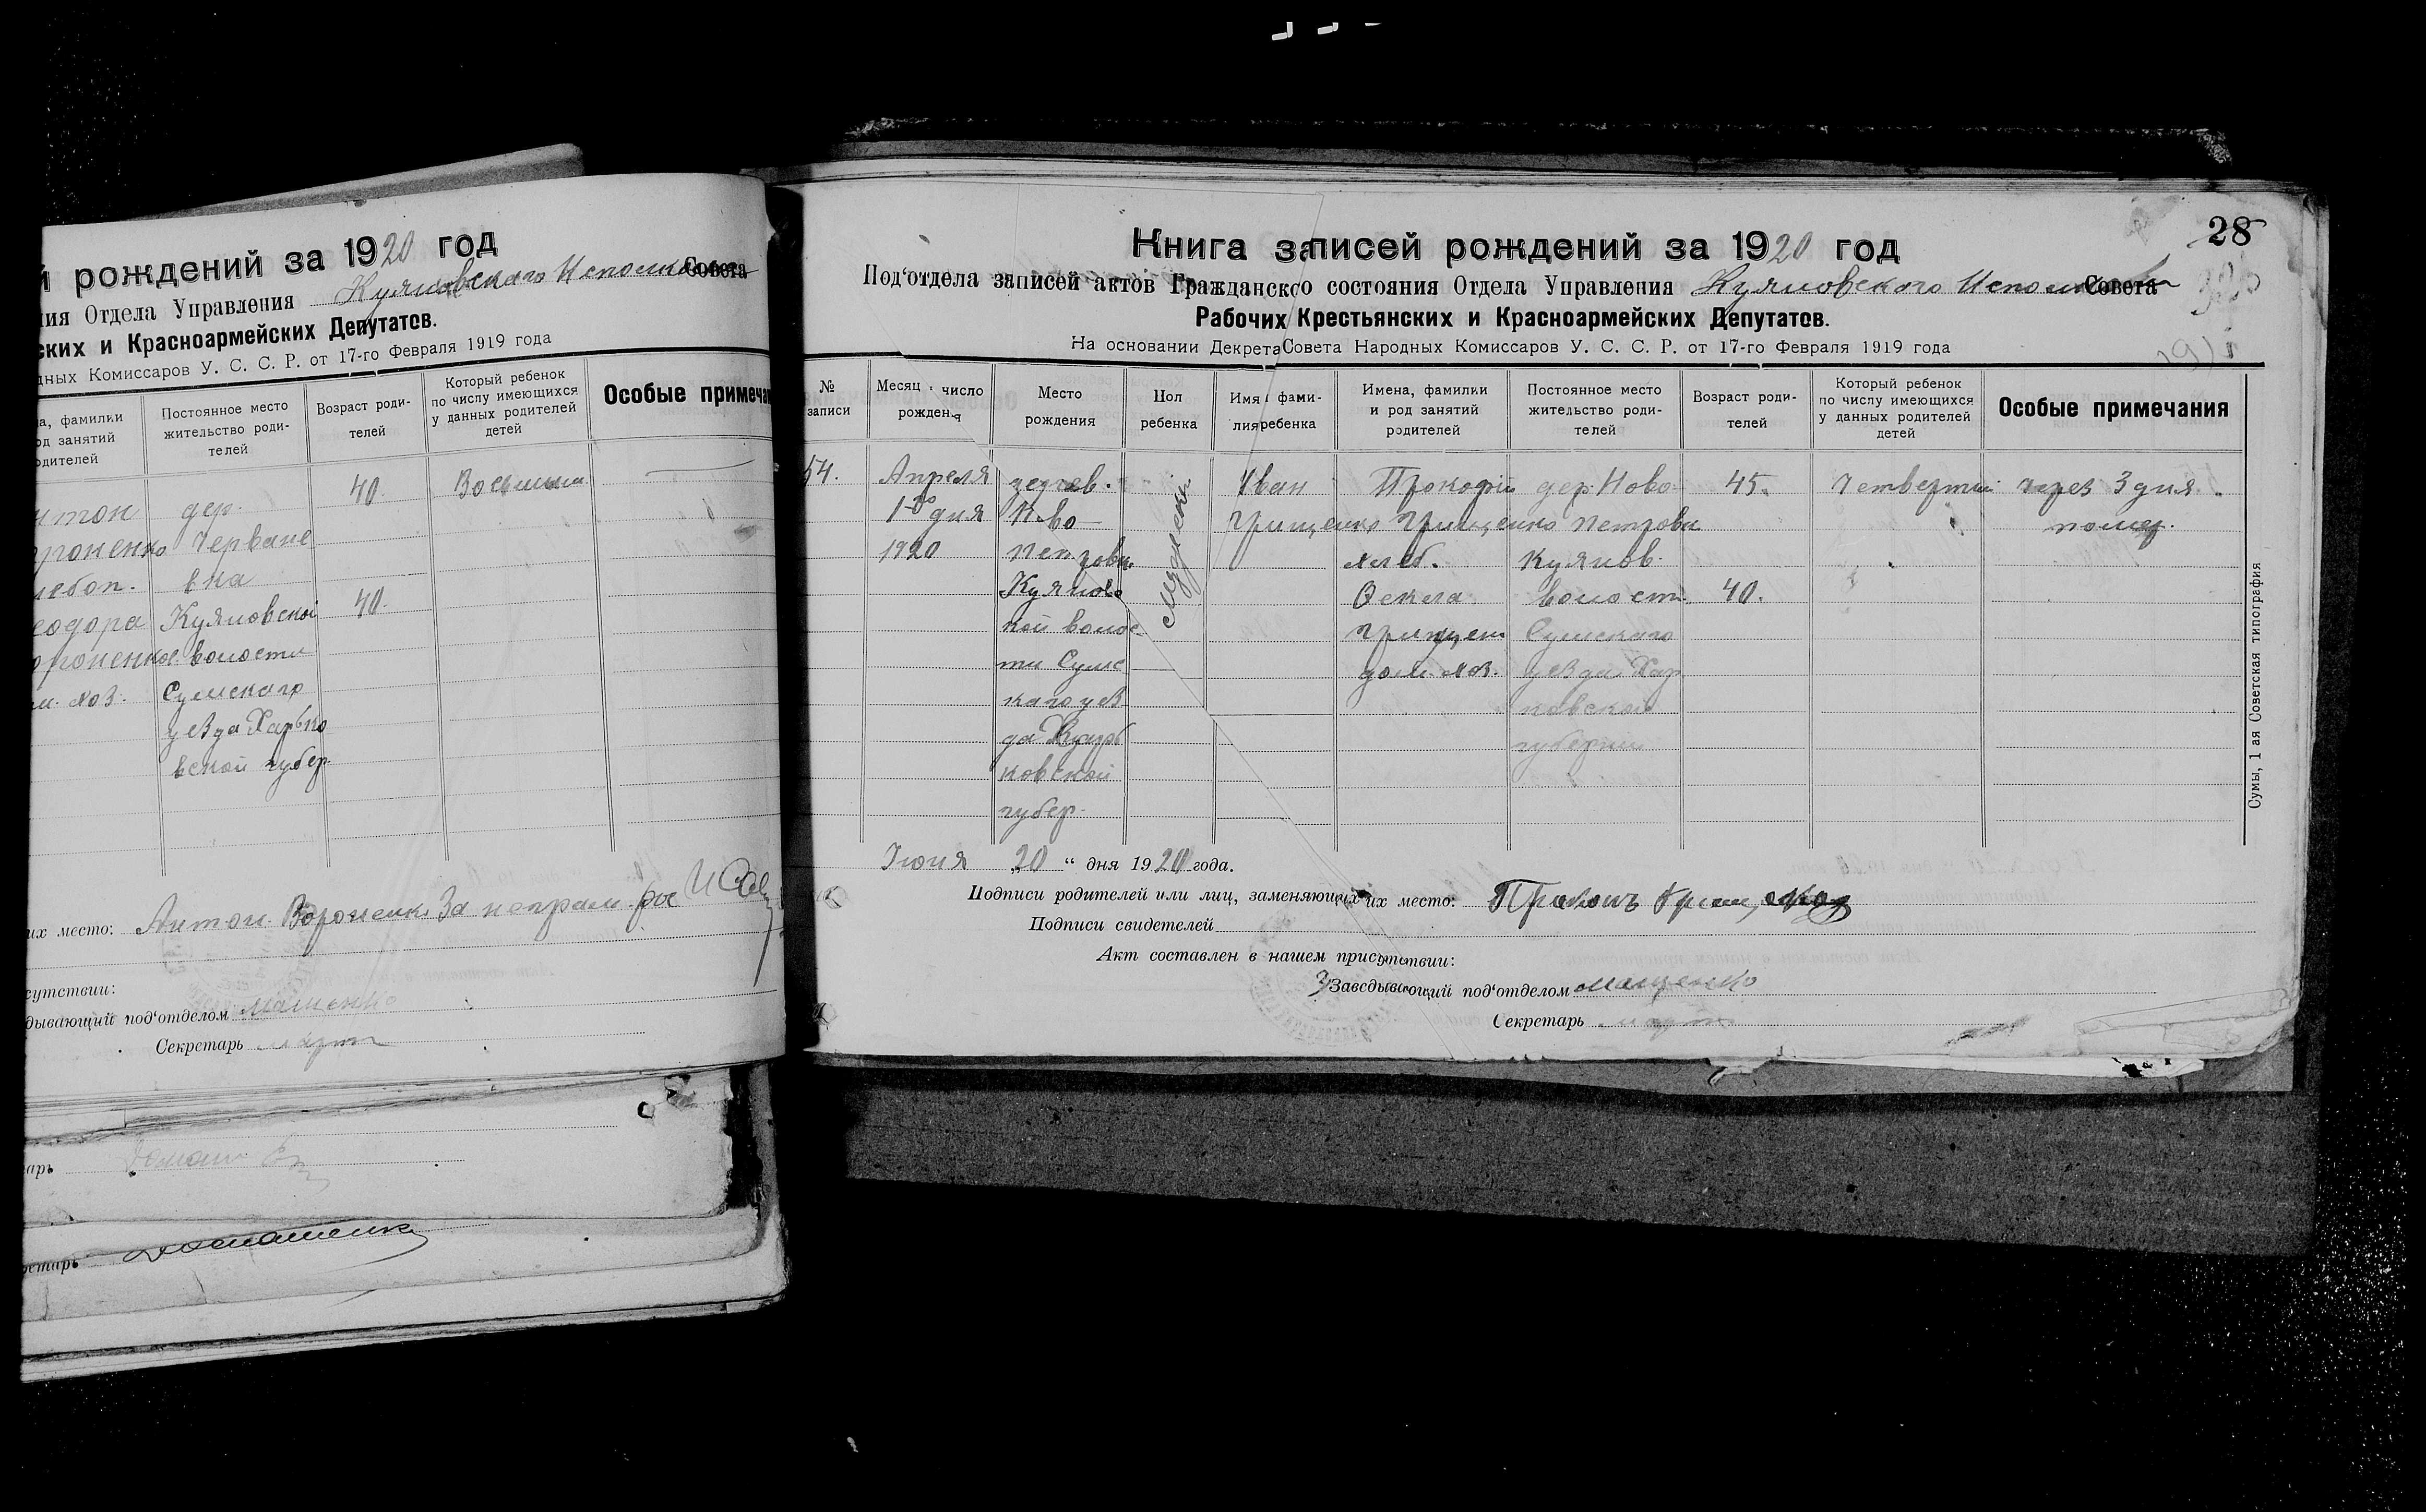 й рождений за 1920 год
ния Отдела Управления Куяновского Исполкома Совета
ских и Красноармейских Депутатов.
дных Комиссаров У. С. С. Р. от 17-го Февраля 1919 года
на, фамилки
од занятий
одителей
Постоянное место
жительство роди-
телей
Возраст роди-
телей
Который ребенок
по числу имеющихся
у данных родителей
детей
Особые примечан
нтон
ороненко
лебоп.
еодора
ороненко
м. хоз.
дер.
Черване
вка
Куяновской
волости
Сумскаго
уезда Харько
вской губер.
40.
40.
Восьмым
их место: Антон Вороненк. За неграм. рос
сутствии:
дывающий под'отделом Мащенко
Секретарь
арь
ретарь
28
Книга записей рождений за 1920 год
Под'отдела записей актов Гражданского состояния Отдела Управления Куяновского Исполкома Совета
Рабочих Крестьянских и Красноармейских Депутатов.
На основании Декрета Совета Народных Комиссаров У. С. С. Р. от 17-го Февраля 1919 года
№
записи
Месяц и число
рождения
Место
рождения
Пол
ребенка
Имя и фами-
лия ребенка
Имена, фамилки
и род занятий
родителей
Постоянное место
жительство роди-
телей
Возраст роди-
телей
Который ребенок
по числу имеющихся
у данных родителей
детей
Особые примечания
54.
Апреля
1го дня
1920
Ново
Петровк.
Куяновс
кой волос
ти Сумс
каго уез
да Харь
ковской
губер.
Мужеский
Иван
Грищенко
Прокофий
Грищенко
хлеб.
Фекла
Грищен
дом. хоз.
дер. Ново
Петровка
Куянов.
волости
Сумскаго
уезда Хар
ковской
губернии
45.
40.
Четвертый
через 3 дня
помер.
Июня 20 " дня 1920 года.
Подписи родителей или лиц, заменяющих их место: Прокопъ Грищенко
Подписи свидетелей
Акт составлен в нашем присутствии:
Заведывающий под'отделом Мащенко
Секретарь
Сумы, 1 ая Советская типография